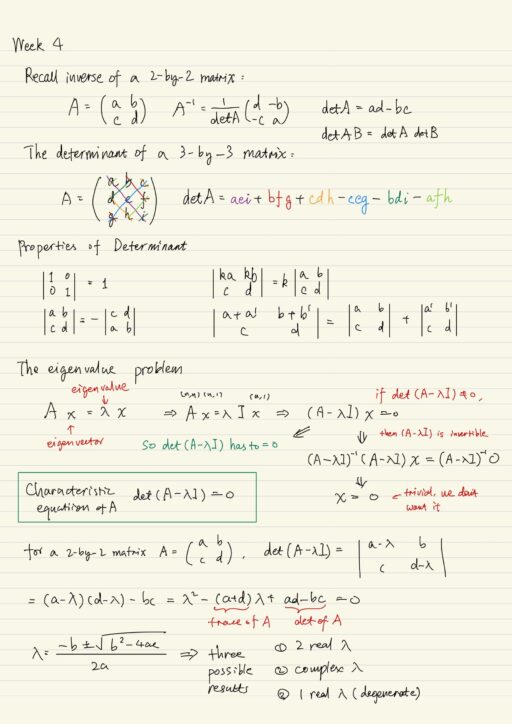 Week 4
Recall inverse of a 2-by-2 matrix:
A = (a b
c d) A⁻¹ = 1/detA (d -b
-c a) detA = ad-bc
detAB = detA detB
The determinant of a 3-by-3 matrix:
A = (a b c
d e f
g h i) detA = aei + bfg + cdh - ceg - bdi - afh
Properties of Determinant
|1 0
0 1| = 1 |ka kb
c d| = k |a b
c d|
|a b
c d| = - |c d
a b| |a+a' b+b'
c d| = |a b
c d| + |a' b'
c d|
The eigenvalue problem
eigenvalue
A x = λ x ⇒ A x = λ I x ⇒ (A-λI) x = 0
eigenvector
if det (A-λI) ≠ 0,
then (A-λI) is invertible
so det(A-λI) has to = 0
(A-λI)⁻¹ (A-λI) x = (A-λI)⁻¹ 0
x = 0 ← trivial, we don't
want it
Characteristic
equation of A det (A-λI) = 0
for a 2-by-2 matrix A = (a b
c d), det (A-λI) = |a-λ b
c d-λ|
= (a-λ)(d-λ) - bc = λ² - (a+d) λ + ad-bc = 0
trace of A det of A
λ = -b ± √b²-4ac / 2a ⇒ three
possible
results
① 2 real λ
② complex λ
③ 1 real λ (degenerate)